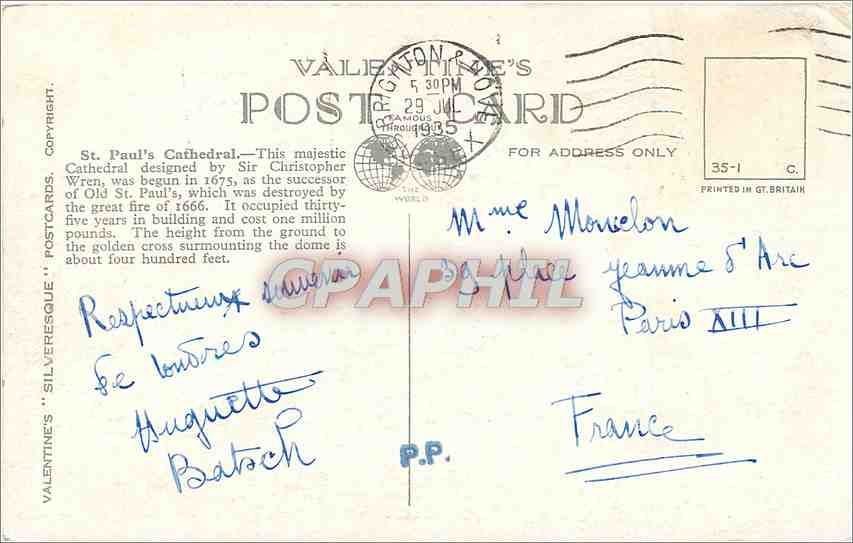 VALENTINE'S
POST CARD
BRIGHTON & HOVE
5 30 PM
29 JUL
1935
X
FAMOUS
THROUGHOUT
THE
WORLD
FOR ADDRESS ONLY
35-1 C.
PRINTED IN GT. BRITAIN
VALENTINE'S "SILVERESQUE" POSTCARDS. COPYRIGHT.
St. Paul's Cathedral.—This majestic
Cathedral designed by Sir Christopher
Wren, was begun in 1675, as the successor
of Old St. Paul's, which was destroyed by
the great fire of 1666. It occupied thirty-
five years in building and cost one million
pounds. The height from the ground to
the golden cross surmounting the dome is
about four hundred feet.
CPAPHIL
Respectueux souvenir
de Londres
Huguette
Batsch
P.P.
Mme
39 place Jeanne d'Arc
Paris XIII
France